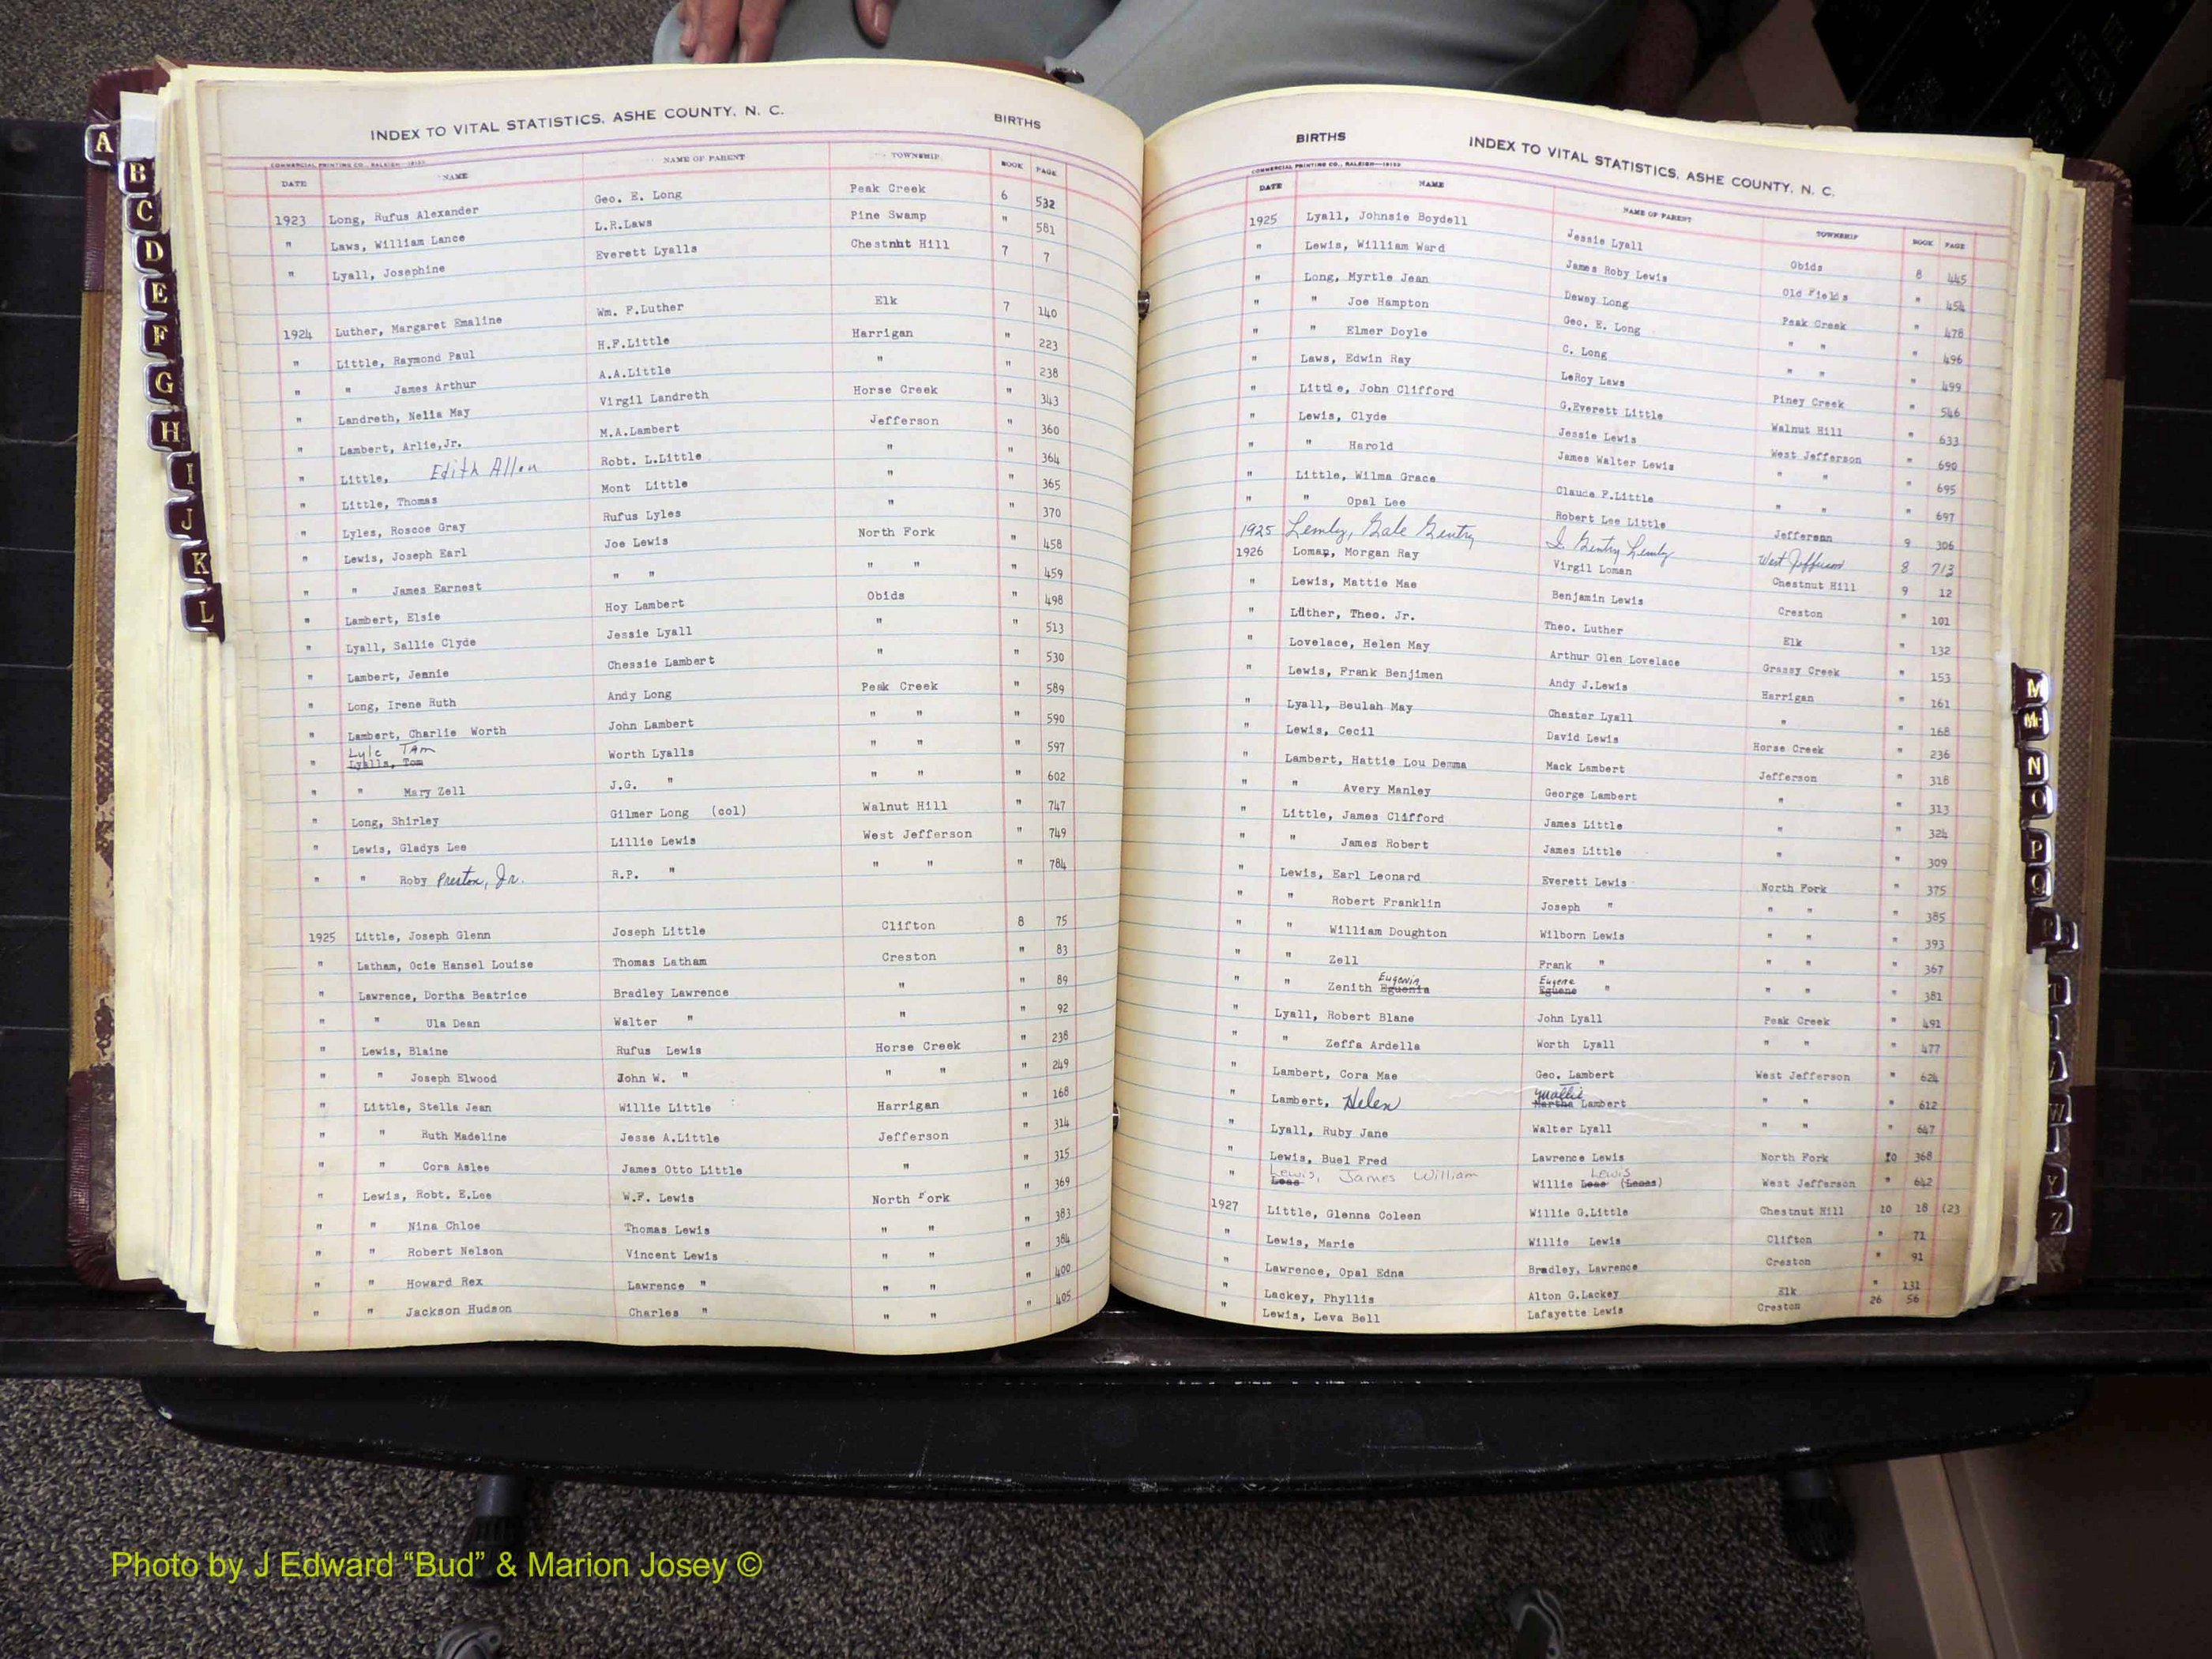 INDEX TO VITAL STATISTICS, ASHE COUNTY, N. C. BIRTHS
COMMERCIAL PRINTING CO., RALEIGH—18133
DATE NAME NAME OF PARENT TOWNSHIP BOOK PAGE
1923 Long, Rufus Alexander Geo. E. Long Peak Creek 6 532
" Laws, William Lance L.R.Laws Pine Swamp " 581
" Lyall, Josephine Everett Lyalls Chestnht Hill 7 7
1924 Luther, Margaret Emaline Wm. F.Luther Elk 7 140
" Little, Raymond Paul H.F.Little Harrigan " 223
" " James Arthur A.A.Little " " 238
" Landreth, Nelia May Virgil Landreth Horse Creek " 343
" Lambert, Arlie,Jr. M.A.Lambert Jefferson " 360
" Little, Edith Allen Robt. L.Little " " 364
" Little, Thomas Mont Little " " 365
" Lyles, Roscoe Gray Rufus Lyles " " 370
" Lewis, Joseph Earl Joe Lewis North Fork " 458
" " James Earnest " " " " " 459
" Lambert, Elsie Hoy Lambert Obids " 498
" Lyall, Sallie Clyde Jessie Lyall " " 513
" Lambert, Jennie Chessie Lambert " " 530
" Long, Irene Ruth Andy Long Peak Creek " 589
" Lambert, Charlie Worth John Lambert " " " 590
Lyle Tam
" Lyalls, Tom Worth Lyalls " " " 597
" " Mary Zell J.G. " " " " 602
" Long, Shirley Gilmer Long (col) Walnut Hill " 747
" Lewis, Gladys Lee Lillie Lewis West Jefferson " 749
" " Roby Preston, Jr. R.P. " " " " 784
1925 Little, Joseph Glenn Joseph Little Clifton 8 75
" Latham, Ocie Hansel Louise Thomas Latham Creston " 83
" Lawrence, Dortha Beatrice Bradley Lawrence " " 89
" " Ula Dean Walter " " " 92
" Lewis, Blaine Rufus Lewis Horse Creek " 238
" " Joseph Elwood John W. " " " " 249
" Little, Stella Jean Willie Little Harrigan " 168
" " Ruth Madeline Jesse A.Little Jefferson " 314
" " Cora Aslee James Otto Little " " 315
" Lewis, Robt. E.Lee W.F. Lewis North Fork " 369
" " Nina Chloe Thomas Lewis " " " 383
" " Robert Nelson Vincent Lewis " " " 384
" " Howard Rex Lawrence " " " " 400
" " Jackson Hudson Charles " " " " 405
BIRTHS INDEX TO VITAL STATISTICS, ASHE COUNTY, N. C.
COMMERCIAL PRINTING CO., RALEIGH—18133
DATE NAME NAME OF PARENT TOWNSHIP BOOK PAGE
1925 Lyall, Johnsie Boydell Jessie Lyall Obids 8 445
" Lewis, William Ward James Roby Lewis Old Fields " 454
" Long, Myrtle Jean Dewey Long Peak Creek " 478
" " Joe Hampton Geo. E. Long " " " 496
" " Elmer Doyle C. Long " " " 499
" Laws, Edwin Ray LeRoy Laws Piney Creek " 546
" Little, John Clifford G.Everett Little Walnut Hill " 633
" Lewis, Clyde Jessie Lewis West Jefferson " 690
" " Harold James Walter Lewis " " " 695
" Little, Wilma Grace Claude F.Little " " " 697
" " Opal Lee Robert Lee Little Jefferson 9 306
1925 Lemly, Gale Gentry I. Gentry Lemly West Jefferson 8 713
1926 Loman, Morgan Ray Virgil Loman Chestnut Hill 9 12
" Lewis, Mattie Mae Benjamin Lewis Creston " 101
" Luther, Theo. Jr. Theo. Luther Elk " 132
" Lovelace, Helen May Arthur Glen Lovelace Grassy Creek " 153
" Lewis, Frank Benjimen Andy J.Lewis Harrigan " 161
" Lyall, Beulah May Chester Lyall " " 168
" Lewis, Cecil David Lewis Horse Creek " 236
" Lambert, Hattie Lou Demma Mack Lambert Jefferson " 318
" " Avery Manley George Lambert " " 313
" Little, James Clifford James Little " " 324
" " James Robert James Little " " 309
" Lewis, Earl Leonard Everett Lewis North Fork " 375
" " Robert Franklin Joseph " " " " 385
" " William Doughton Wilborn Lewis " " " 393
" " Zell Frank " " " " 367
Eugenia Eugene
" " Zenith Eguenia Eguene " " " " 381
" Lyall, Robert Blane John Lyall Peak Creek " 491
" " Zeffa Ardella Worth Lyall " " " 477
" Lambert, Cora Mae Geo. Lambert West Jefferson " 624
Mollie
" Lambert, Helen Martha Lambert " " " 612
" Lyall, Ruby Jane Walter Lyall " " " 647
" Lewis, Buel Fred Lawrence Lewis North Fork 10 368
Lewis, James William Lewis
" Loss Willie Loss (Looss) West Jefferson " 642
1927 Little, Glenna Coleen Willie G.Little Chestnut Hill 10 18 (23
" Lewis, Marie Willie Lewis Clifton " 71
" Lawrence, Opal Edna Bradley, Lawrence Creston " 91
" Lackey, Phyllis Alton G.Lackey Elk " 131
" Lewis, Leva Bell Lafayette Lewis Creston 26 56
A
B
C
D
E
F
G
H
I
J
K
L
M
Mc
N
O
P
Q
R
T
W
Y
Z
Photo by J Edward “Bud” & Marion Josey ©